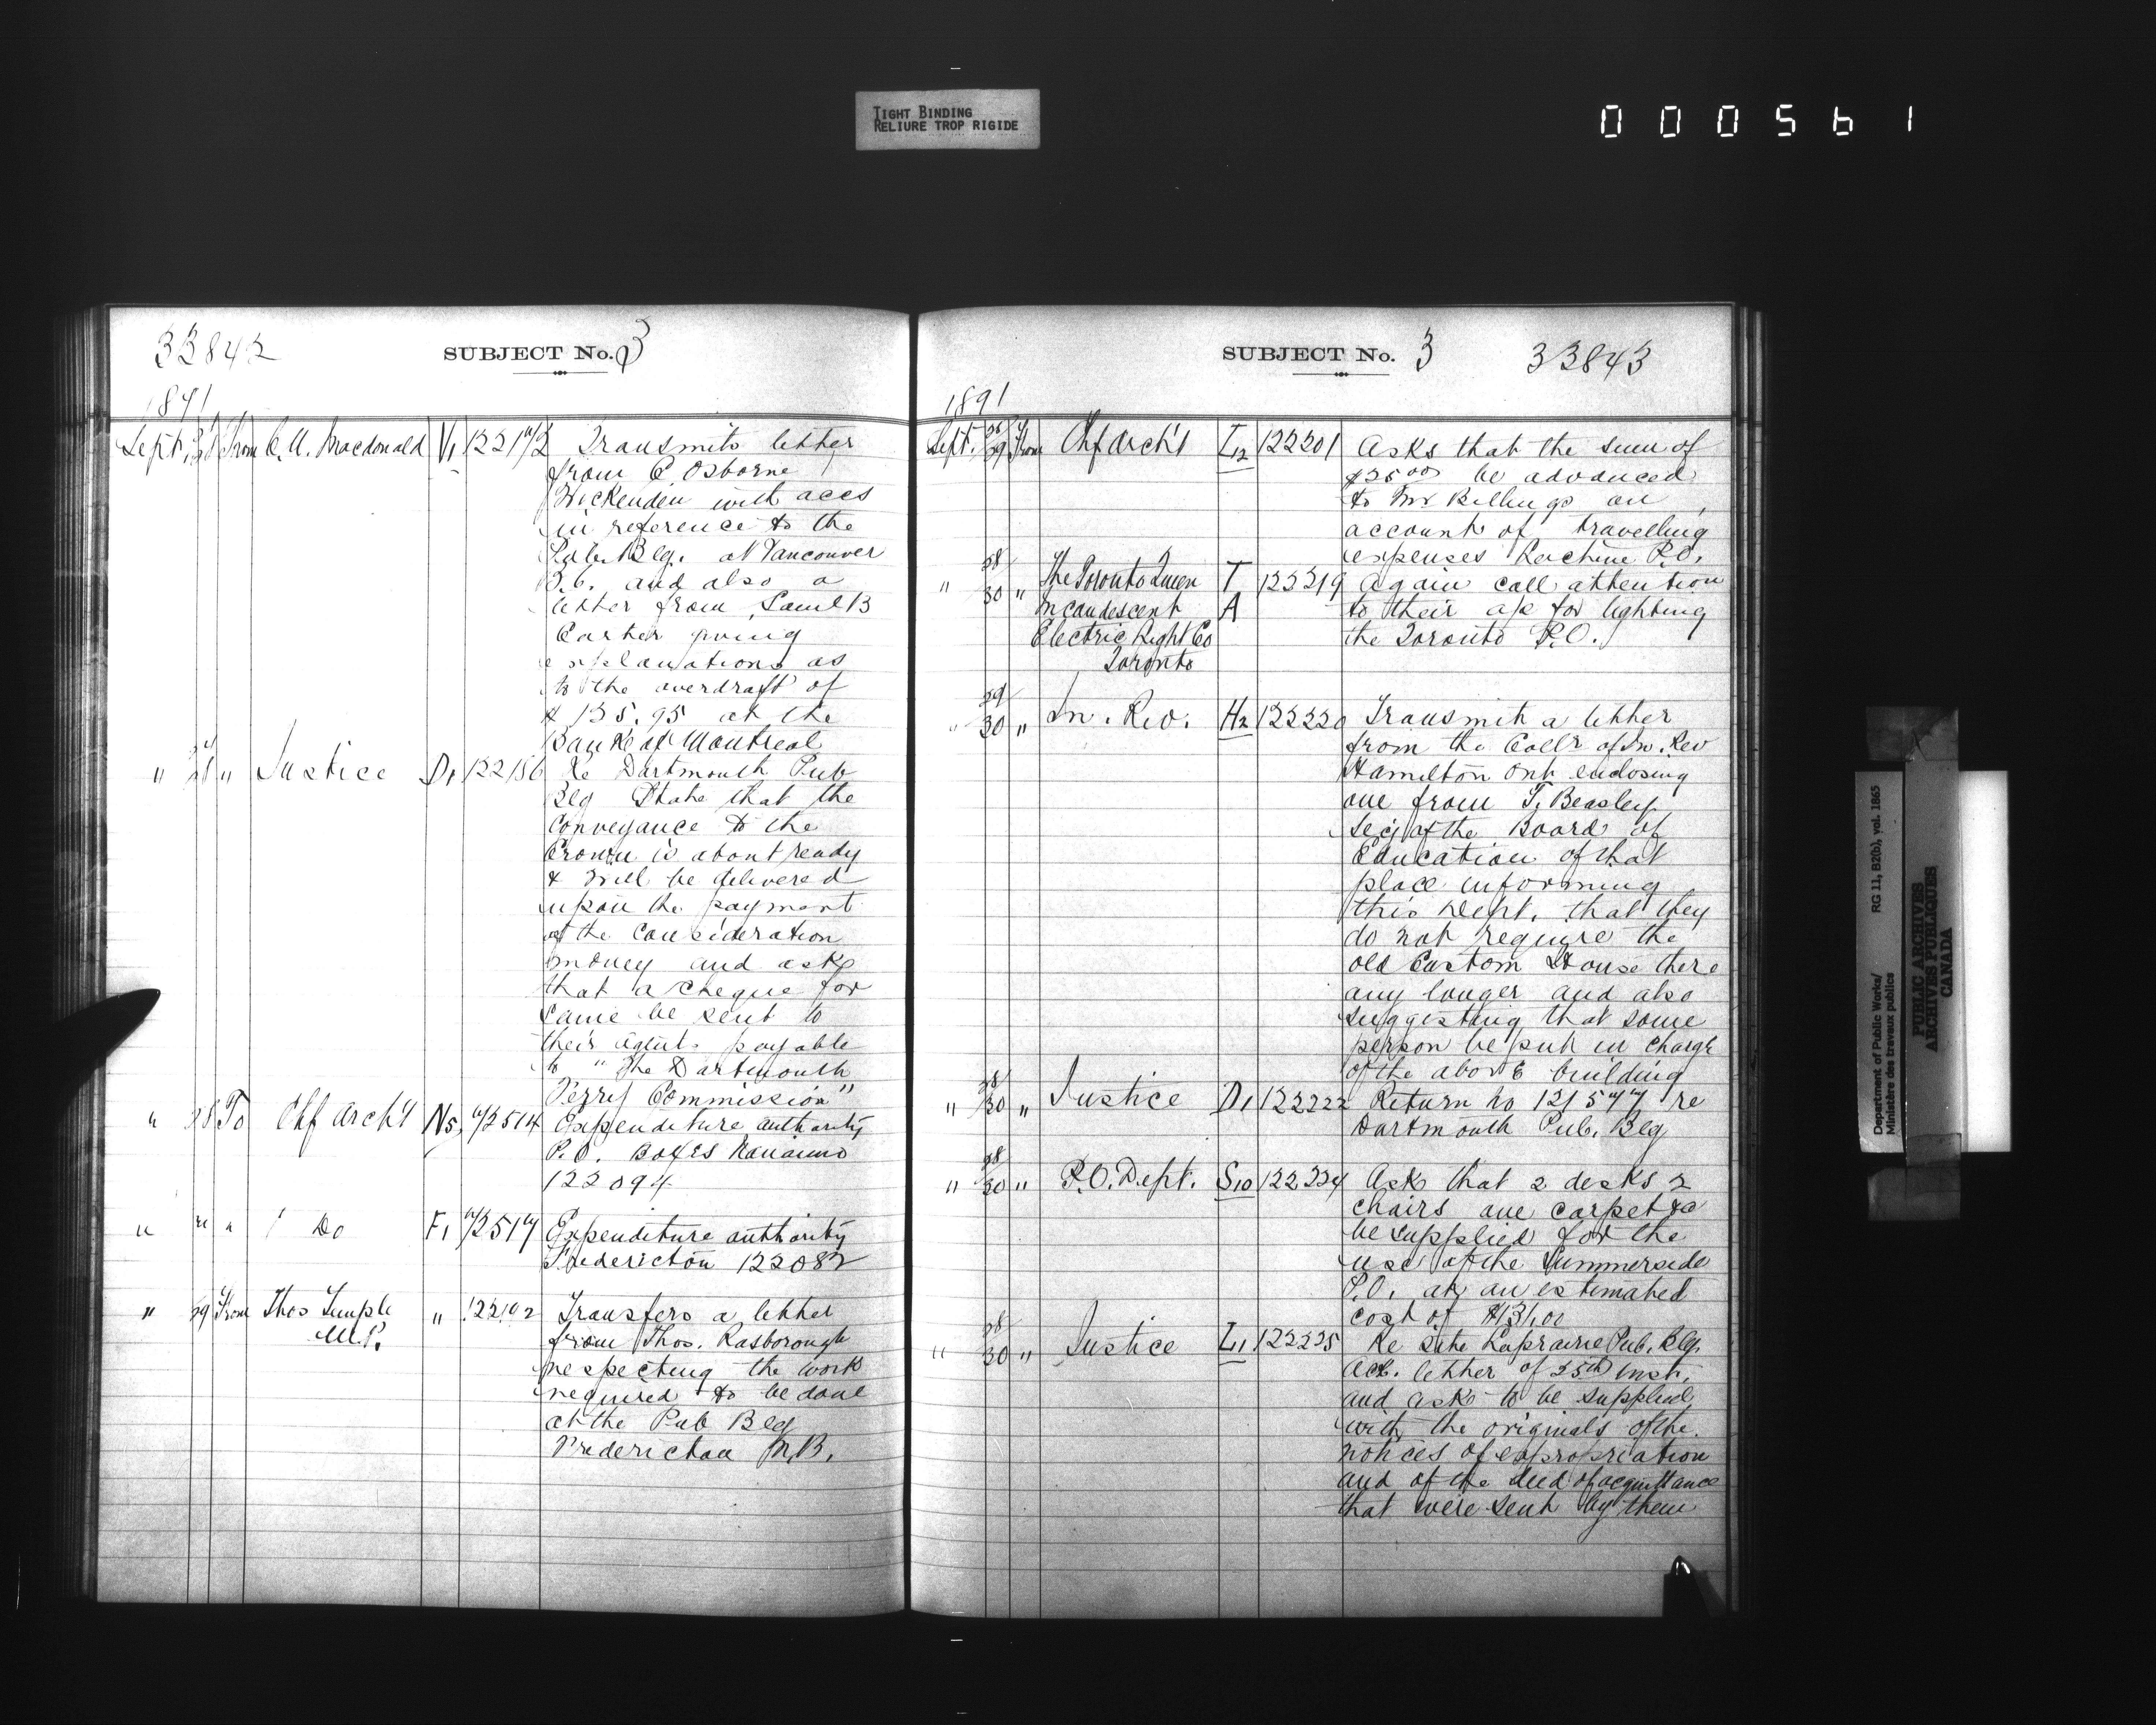 TIGHT BINDING
RELIURE TROP RIGIDE
000561
33842
SUBJECT No. 3
1891
Sept. 28 From C. A. Macdonald V1 122172 Transmits letter
from C Osborne
Wickenden with accs
in reference to the
Pub. Blg. at Vancouver
B.C. and also a
letter from Saml B
giving
explanations as
to the overdraft of
$135.95 at the
Bank of Montreal
" 28 " Justice D1 122186 Re Dartmouth Pub
Blg State that the
conveyance to the
Crown is about ready
& will be delivered
upon the payment
of the consideration
money and asks
that a cheque for
same be sent to
their agents payable
to "The Dartmouth
Ferry Commission"
" 28 To Chf Arch't N5 72514 Expenditure authority
P.O. Boxes Nanaimo
122094
" " " Do F1 72517 Expenditure authority
Fredericton 122082
" 29 From Thos Temple " Transfers a letter
M.P. from Thos. Rasborough
respecting the work
required to be done
at the Pub Blg
Fredericton N.B.
SUBJECT No. 3 33843
1891
Sept. 28/29 From Chf Arch't L12 122201 Asks that the sum of
$25.00 be advanced
to Mr Billings on
account of travelling
expenses Lachine P.O.
" 28/30 " The Toronto Incan T 122219 Again call attention
Incandescent A to their ap for lighting
Electric Light Co the Toronto P.O.
Toronto
" 29/30 " In. Rev. H2 122220 Transmit a letter
from the Coll'r of In. Rev
Hamilton Ont enclosing
one from T. Beasley
Sec'y of the Board of
Education of that
place informing
this Dept. that they
do not require the
old Custom House there
any longer and also
suggesting that some
person be put in charge
of the above building
" 28/30 " Justice D1 122222 Return No 121577 re
Dartmouth Pub. Blg
" 28/30 " P.O. Dept. S10 122224 Ask that 2 desks 2
chairs one carpet &c
be supplied for the
use of the Summerside
P.O. at an estimated
cost of $131.00
" 28/30 " Justice L1 122225 Re Site Laprairie Pub. Blg.
Ack. letter of 25th inst.
and ask to be supplied
with the originals of the
notices of expropriation
and of the deed of acquittance
that were sent by them
Department of Public Works/
Ministère des travaux publics
RG 11, B2(b), vol. 1865
PUBLIC ARCHIVES
ARCHIVES PUBLIQUES
CANADA